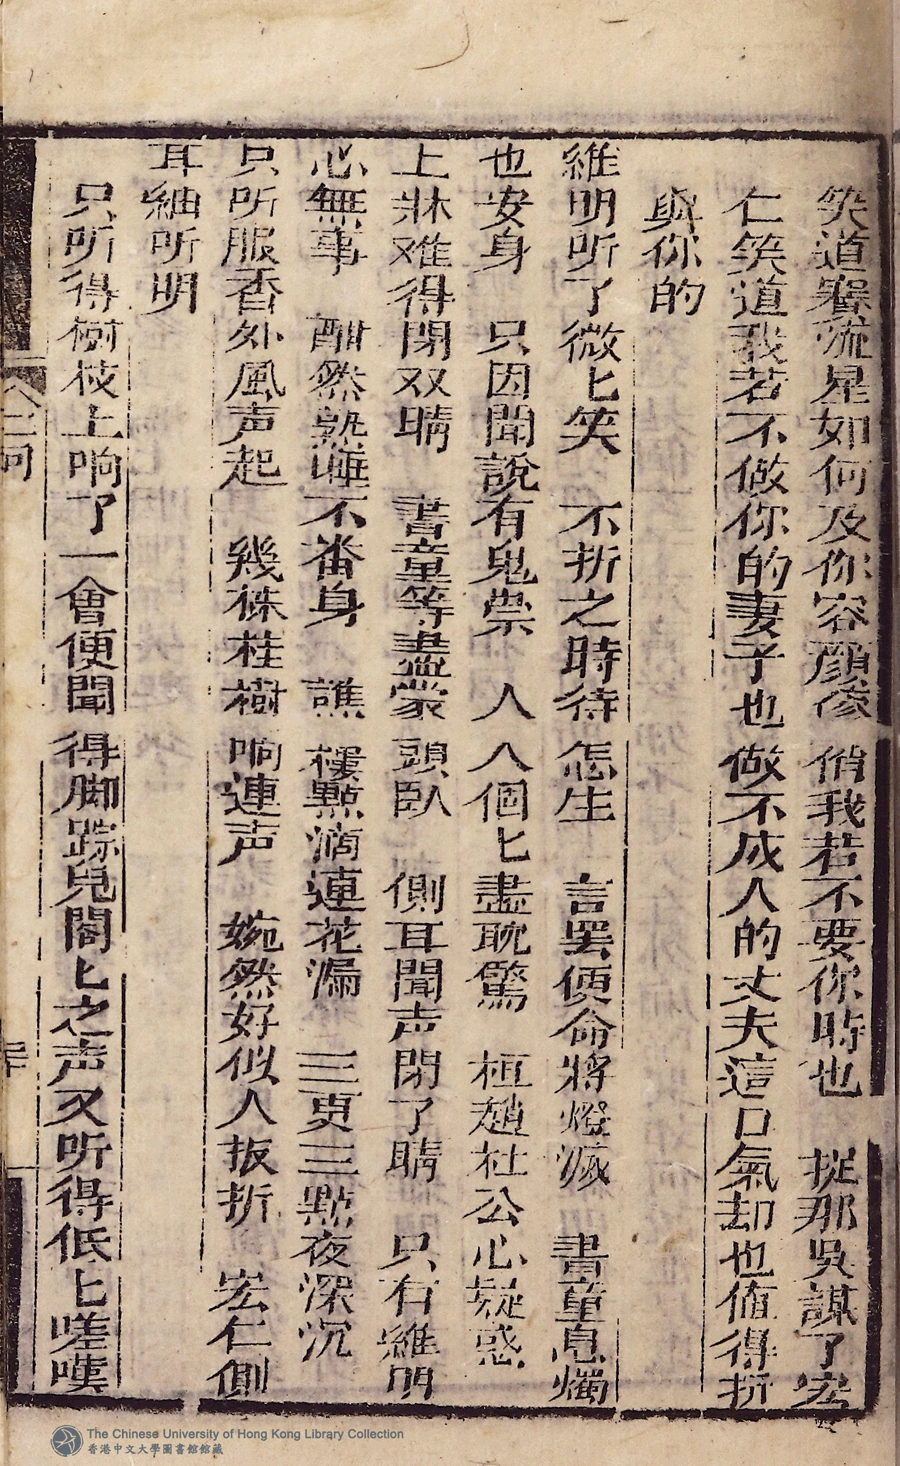 笑道寡流星如何及你容顏俊俏我若不要你時也捉那吳謀了宏
仁笑道我若不做你的妻子也做不成人的丈夫這口氣却也值得折
與你的
維明听了微匕笑　不折之時待怎生　言罢便命將燈滅　書童息燭
也安身　只因聞說有鬼祟　人人個匕盡耽驚　桓趙杜公心疑惑
上牀难得閉双睛　書童等盡蒙頭臥　側耳聞声閉了睛　只有維明
心無事　酣然熟睡不番身　譙樓點滴連花漏　三更三點夜深沉
只听服香外風声起　幾株桂樹响連声　婉然好似人扳折　宏仁側
耳紬听明
只听得樹枝上响了一會便聞得脚踪兒閣匕之声又听得低匕嗟嘆
二回
The Chinese University of Hong Kong Library Collection
香港中文大學圖書館館藏